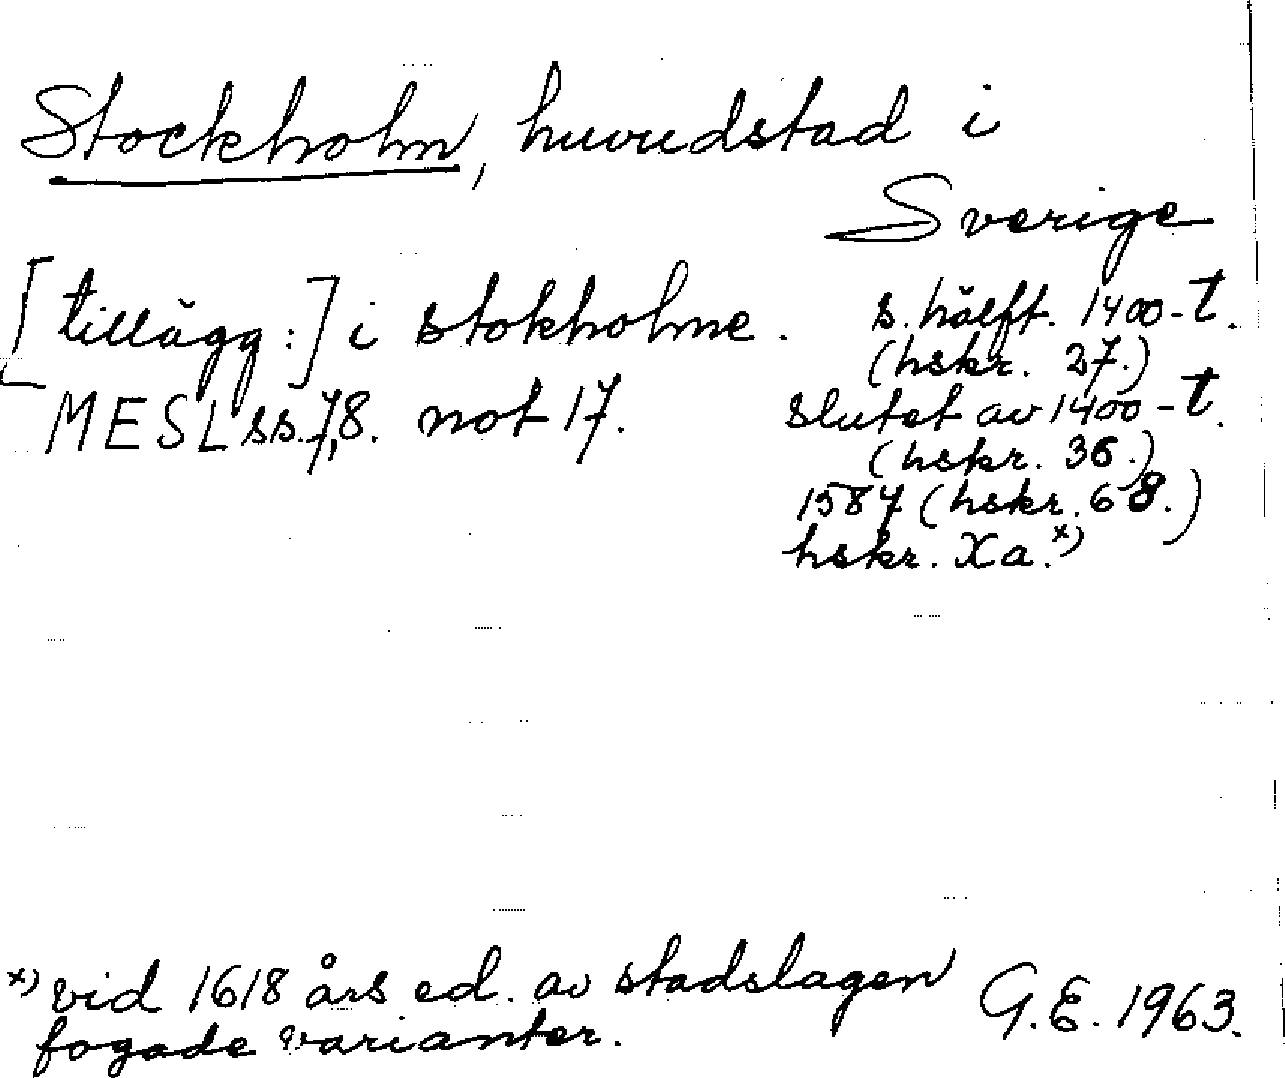 Stockholm, huvudstad i
Sverige
[tillägg:] i stokholme. s. hälft. 1400-t.
(hskr. 27.)
MESL ss. 7,8. not 17. slutet av 1400-t.
(hskr. 36.)
1587 (hskr. 68.)
hskr. Xa.x)
x) vid 1618 års ed. av stadslagen
fogade varianter. G.E. 1963.